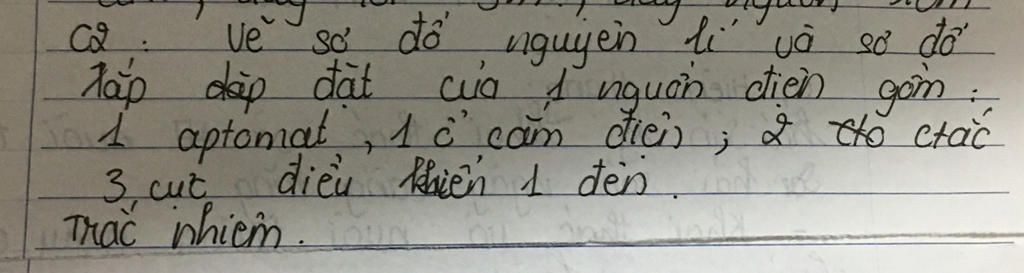 C2 : Vẽ sơ đồ nguyên lí và sơ đồ
lắp đặt của 1 nguồn điện gồm :
1 aptomat, 1 ổ cắm điện ; 2 ctăc
3 cực điều khiển 1 đèn.
Trắc nhiệm.